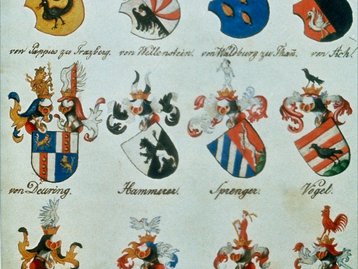 von Pappus zu Trazberg. von Wellenstein. von Waldburg zu Thañ. von Ach.
von Deuring. Hammerer. Sprenger. Vogel.